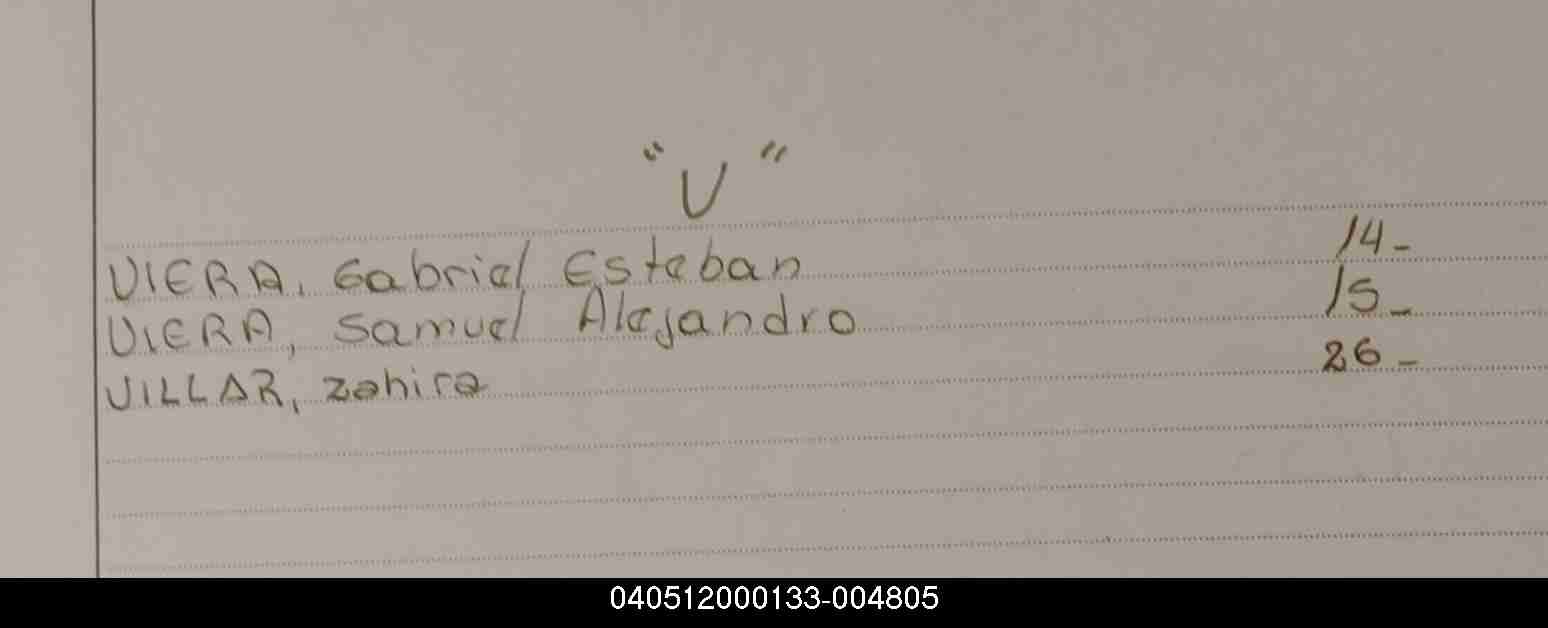 "V"
VIERA, Gabriel Esteban 14-
VIERA, Samuel Alejandro 15-
VILLAR, Zahira 26-
040512000133-004805